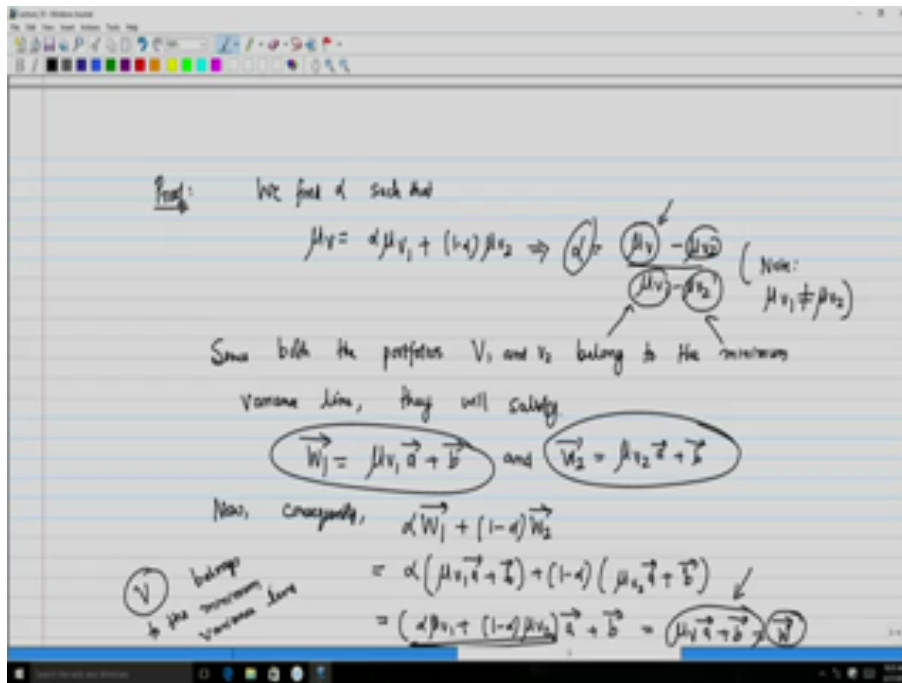 Proof: We find α such that
μv = αμv₁ + (1-α)μv₂ ⇒ α = (μv - μv₂)/(μv₁ - μv₂) (Note: μv₁ ≠ μv₂)
Since both the portfolios V₁ and V₂ belong to the minimum
variance line, they will satisfy
w₁⃗ = μv₁ a⃗ + b⃗ and w₂⃗ = μv₂ a⃗ + b⃗
Now, consequently, αw₁⃗ + (1-α)w₂⃗
= α(μv₁ a⃗ + b⃗) + (1-α)(μv₂ a⃗ + b⃗)
= (αμv₁ + (1-α)μv₂) a⃗ + b⃗ = μv a⃗ + b⃗ = w⃗
V belongs
to the minimum
variance line